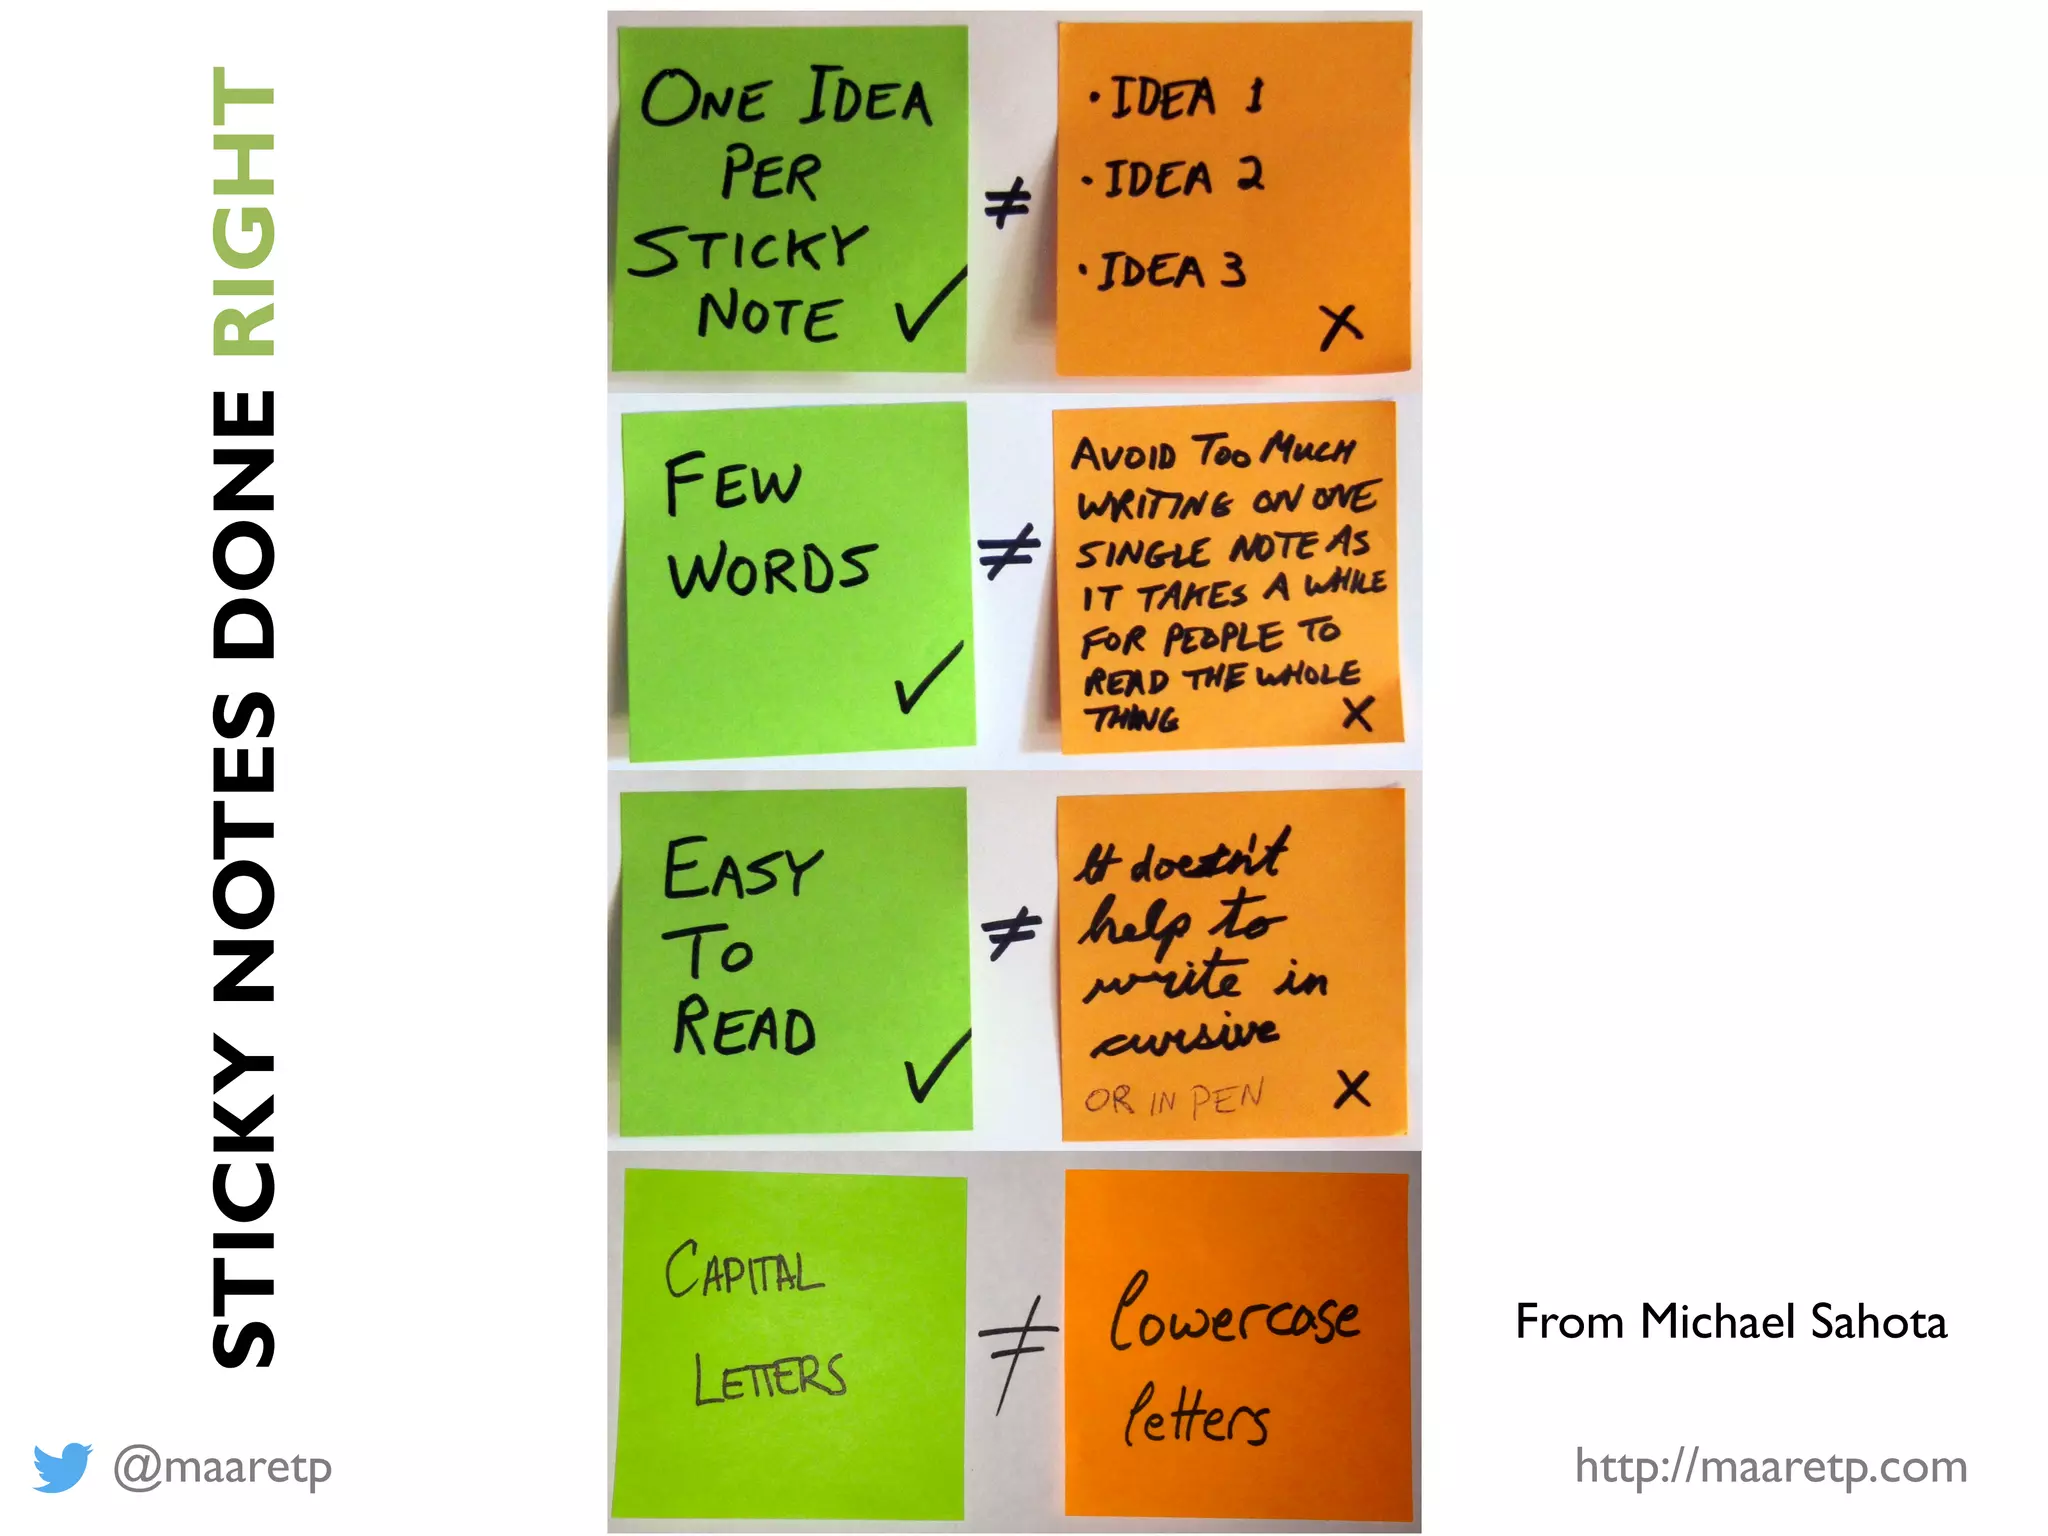 STICKY NOTES DONE RIGHT
ONE IDEA
PER
STICKY
NOTE ✓
≠
• IDEA 1
• IDEA 2
• IDEA 3
X
FEW
WORDS
✓
≠
AVOID TOO MUCH
WRITING ON ONE
SINGLE NOTE AS
IT TAKES A WHILE
FOR PEOPLE TO
READ THE WHOLE
THING X
EASY
TO
READ
✓
≠
It doesn't
help to
write in
cursive
OR IN PEN X
CAPITAL
LETTERS
≠
lowercase
letters
From Michael Sahota
@maaretp
http://maaretp.com